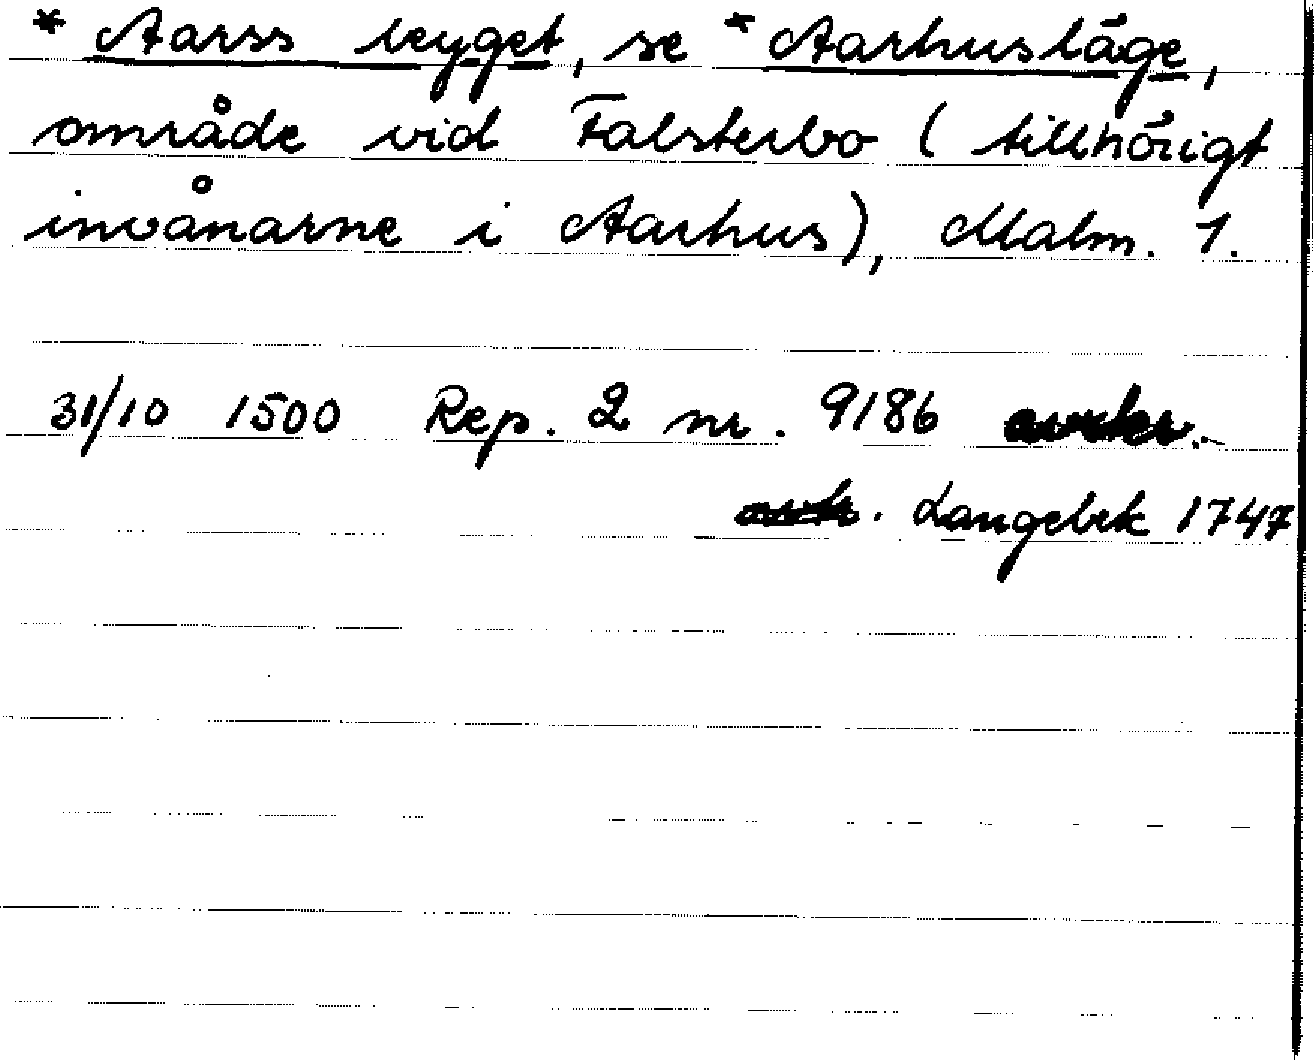 * Aarss leyget, se * Aarhusläge,
område vid Falsterbo (tillhörigt
invånarne i Aarhus), Malm. 1.
31/10 1500 Rep. 2 nr. 9186
Langebek 1747